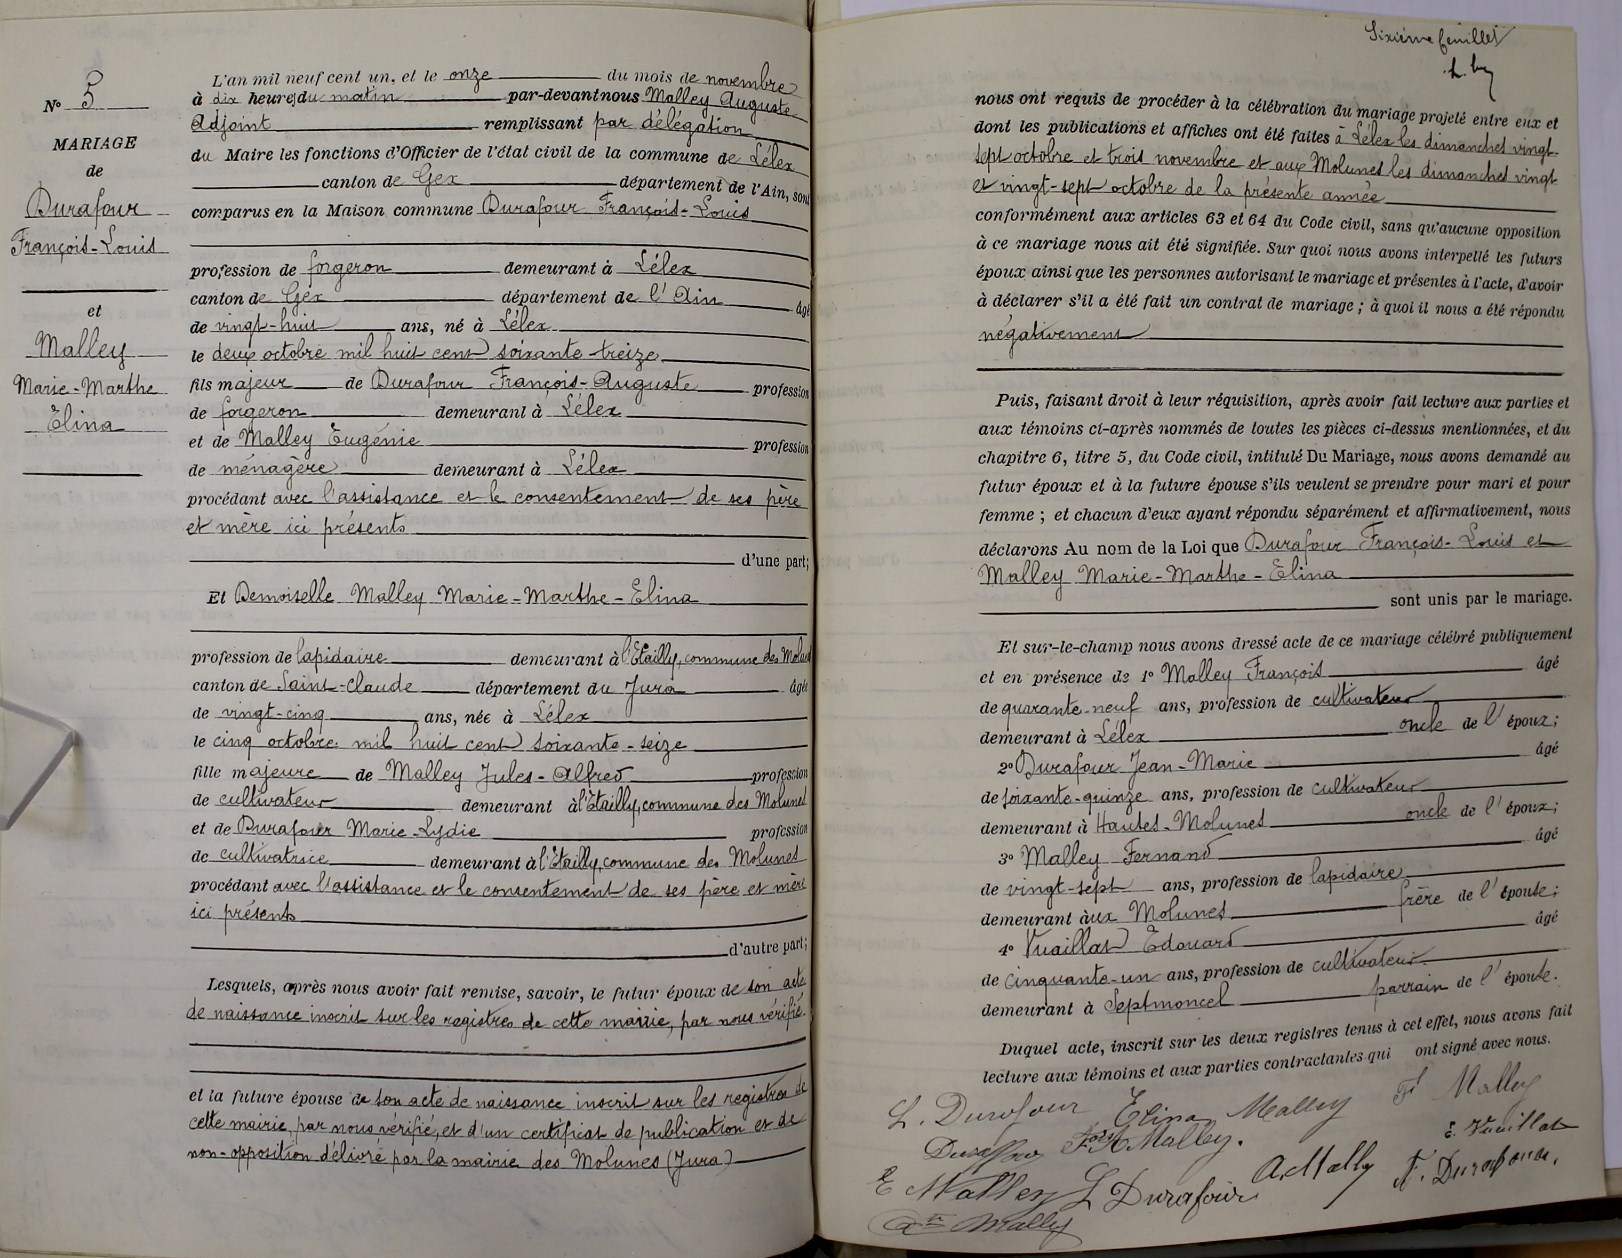 N° 5
MARIAGE
de
Durafour
François-Louis
et
Malley
Marie-Marthe
Elina
L'an mil neuf cent un, et le onze du mois de novembre
à dix heures du matin par-devant nous Malley Auguste
Adjoint remplissant par délégation
du Maire les fonctions d'Officier de l'état civil de la commune de Lélex
canton de Gex département de l'Ain, sont
comparus en la Maison commune Durafour François-Louis
profession de forgeron demeurant à Lélex
canton de Gex département de l'Ain âgé
de vingt-huit ans, né à Lélex
le deux octobre mil huit cent soixante-treize
fils majeur de Durafour François-Auguste profession
de forgeron demeurant à Lélex
et de Malley Eugénie profession
de ménagère demeurant à Lélex
procédant avec l'assistance et le consentement de ses père
et mère ici présents
d'une part;
Et Demoiselle Malley Marie-Marthe-Elina
profession de lapidaire demeurant à l'Etailly, commune des Molunes
canton de Saint-Claude département du Jura âgée
de vingt-cinq ans, née à Lélex
le cinq octobre mil huit cent soixante-seize
fille majeure de Malley Jules-Alfred profession
de cultivateur demeurant à l'Etailly, commune des Molunes
et de Durafour Marie-Lydie profession
de cultivatrice demeurant à l'Etailly, commune des Molunes
procédant avec l'assistance et le consentement de ses père et mère
ici présents
d'autre part;
Lesquels, après nous avoir fait remise, savoir, le futur époux de son acte
de naissance inscrit sur les registres de cette mairie, par nous vérifié.
et la future épouse de son acte de naissance inscrit sur les registres de
cette mairie, par nous vérifié, et d'un certificat de publication et de
non-opposition délivré par la mairie des Molunes (Jura)
Sixième feuillet
nous ont requis de procéder à la célébration du mariage projeté entre eux et
dont les publications et affiches ont été faites à Lélex les dimanches vingt-
sept octobre et trois novembre et aux Molunes les dimanches vingt
et vingt-sept octobre de la présente année
conformément aux articles 63 et 64 du Code civil, sans qu'aucune opposition
à ce mariage nous ait été signifiée. Sur quoi nous avons interpellé les futurs
époux ainsi que les personnes autorisant le mariage et présentes à l'acte, d'avoir
à déclarer s'il a été fait un contrat de mariage; à quoi il nous a été répondu
négativement
Puis, faisant droit à leur réquisition, après avoir fait lecture aux parties et
aux témoins ci-après nommés de toutes les pièces ci-dessus mentionnées, et du
chapitre 6, titre 5, du Code civil, intitulé Du Mariage, nous avons demandé au
futur époux et à la future épouse s'ils veulent se prendre pour mari et pour
femme; et chacun d'eux ayant répondu séparément et affirmativement, nous
déclarons Au nom de la Loi que Durafour François-Louis et
Malley Marie-Marthe-Elina
sont unis par le mariage.
Et sur-le-champ nous avons dressé acte de ce mariage célébré publiquement
et en présence de 1° Malley François âgé
de quarante-neuf ans, profession de cultivateur
demeurant à Lélex oncle de l'époux;
2° Durafour Jean-Marie âgé
de soixante-quinze ans, profession de cultivateur
demeurant à Hautes-Molunes oncle de l'époux;
3° Malley Fernand âgé
de vingt-sept ans, profession de lapidaire
demeurant aux Molunes frère de l'épouse;
4° Vuaillat Edouard âgé
de cinquante-un ans, profession de cultivateur
demeurant à Septmoncel parrain de l'épouse.
Duquel acte, inscrit sur les deux registres tenus à cet effet, nous avons fait
lecture aux témoins et aux parties contractantes qui ont signé avec nous.
L. Durafour Elina Malley Fs Malley
Malley. E. Vuaillat
E Malley L Durafour A. Mally F. Durafour.
Mally